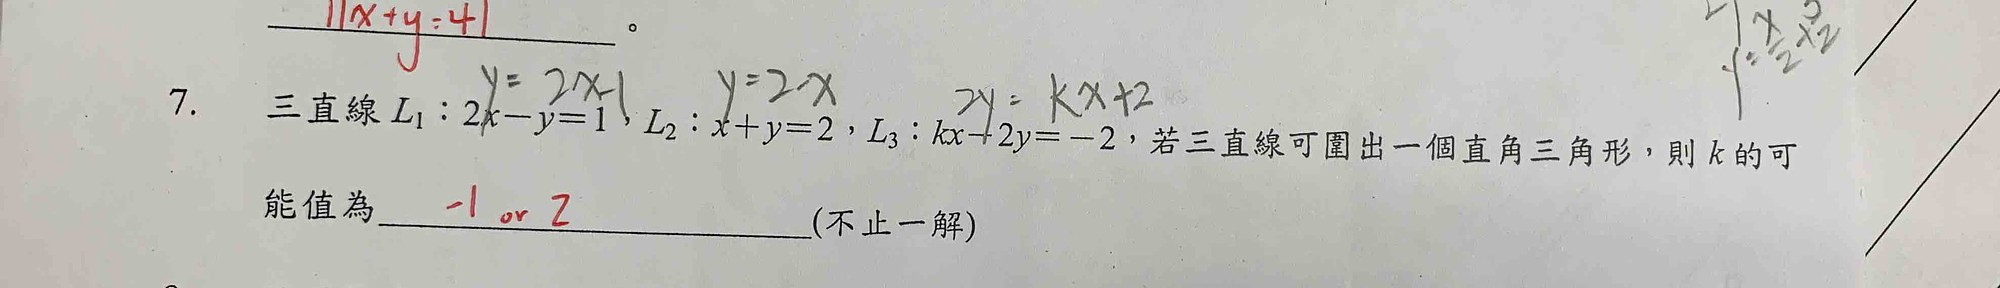 11x+y=41。
y= 2x-1 y=2-x 2y= kx+2
7. 三直線 L₁:2x-y=1,L₂:x+y=2,L₃:kx-2y=-2,若三直線可圍出一個直角三角形,則 k 的可
能值為 -1 or 2 (不止一解)